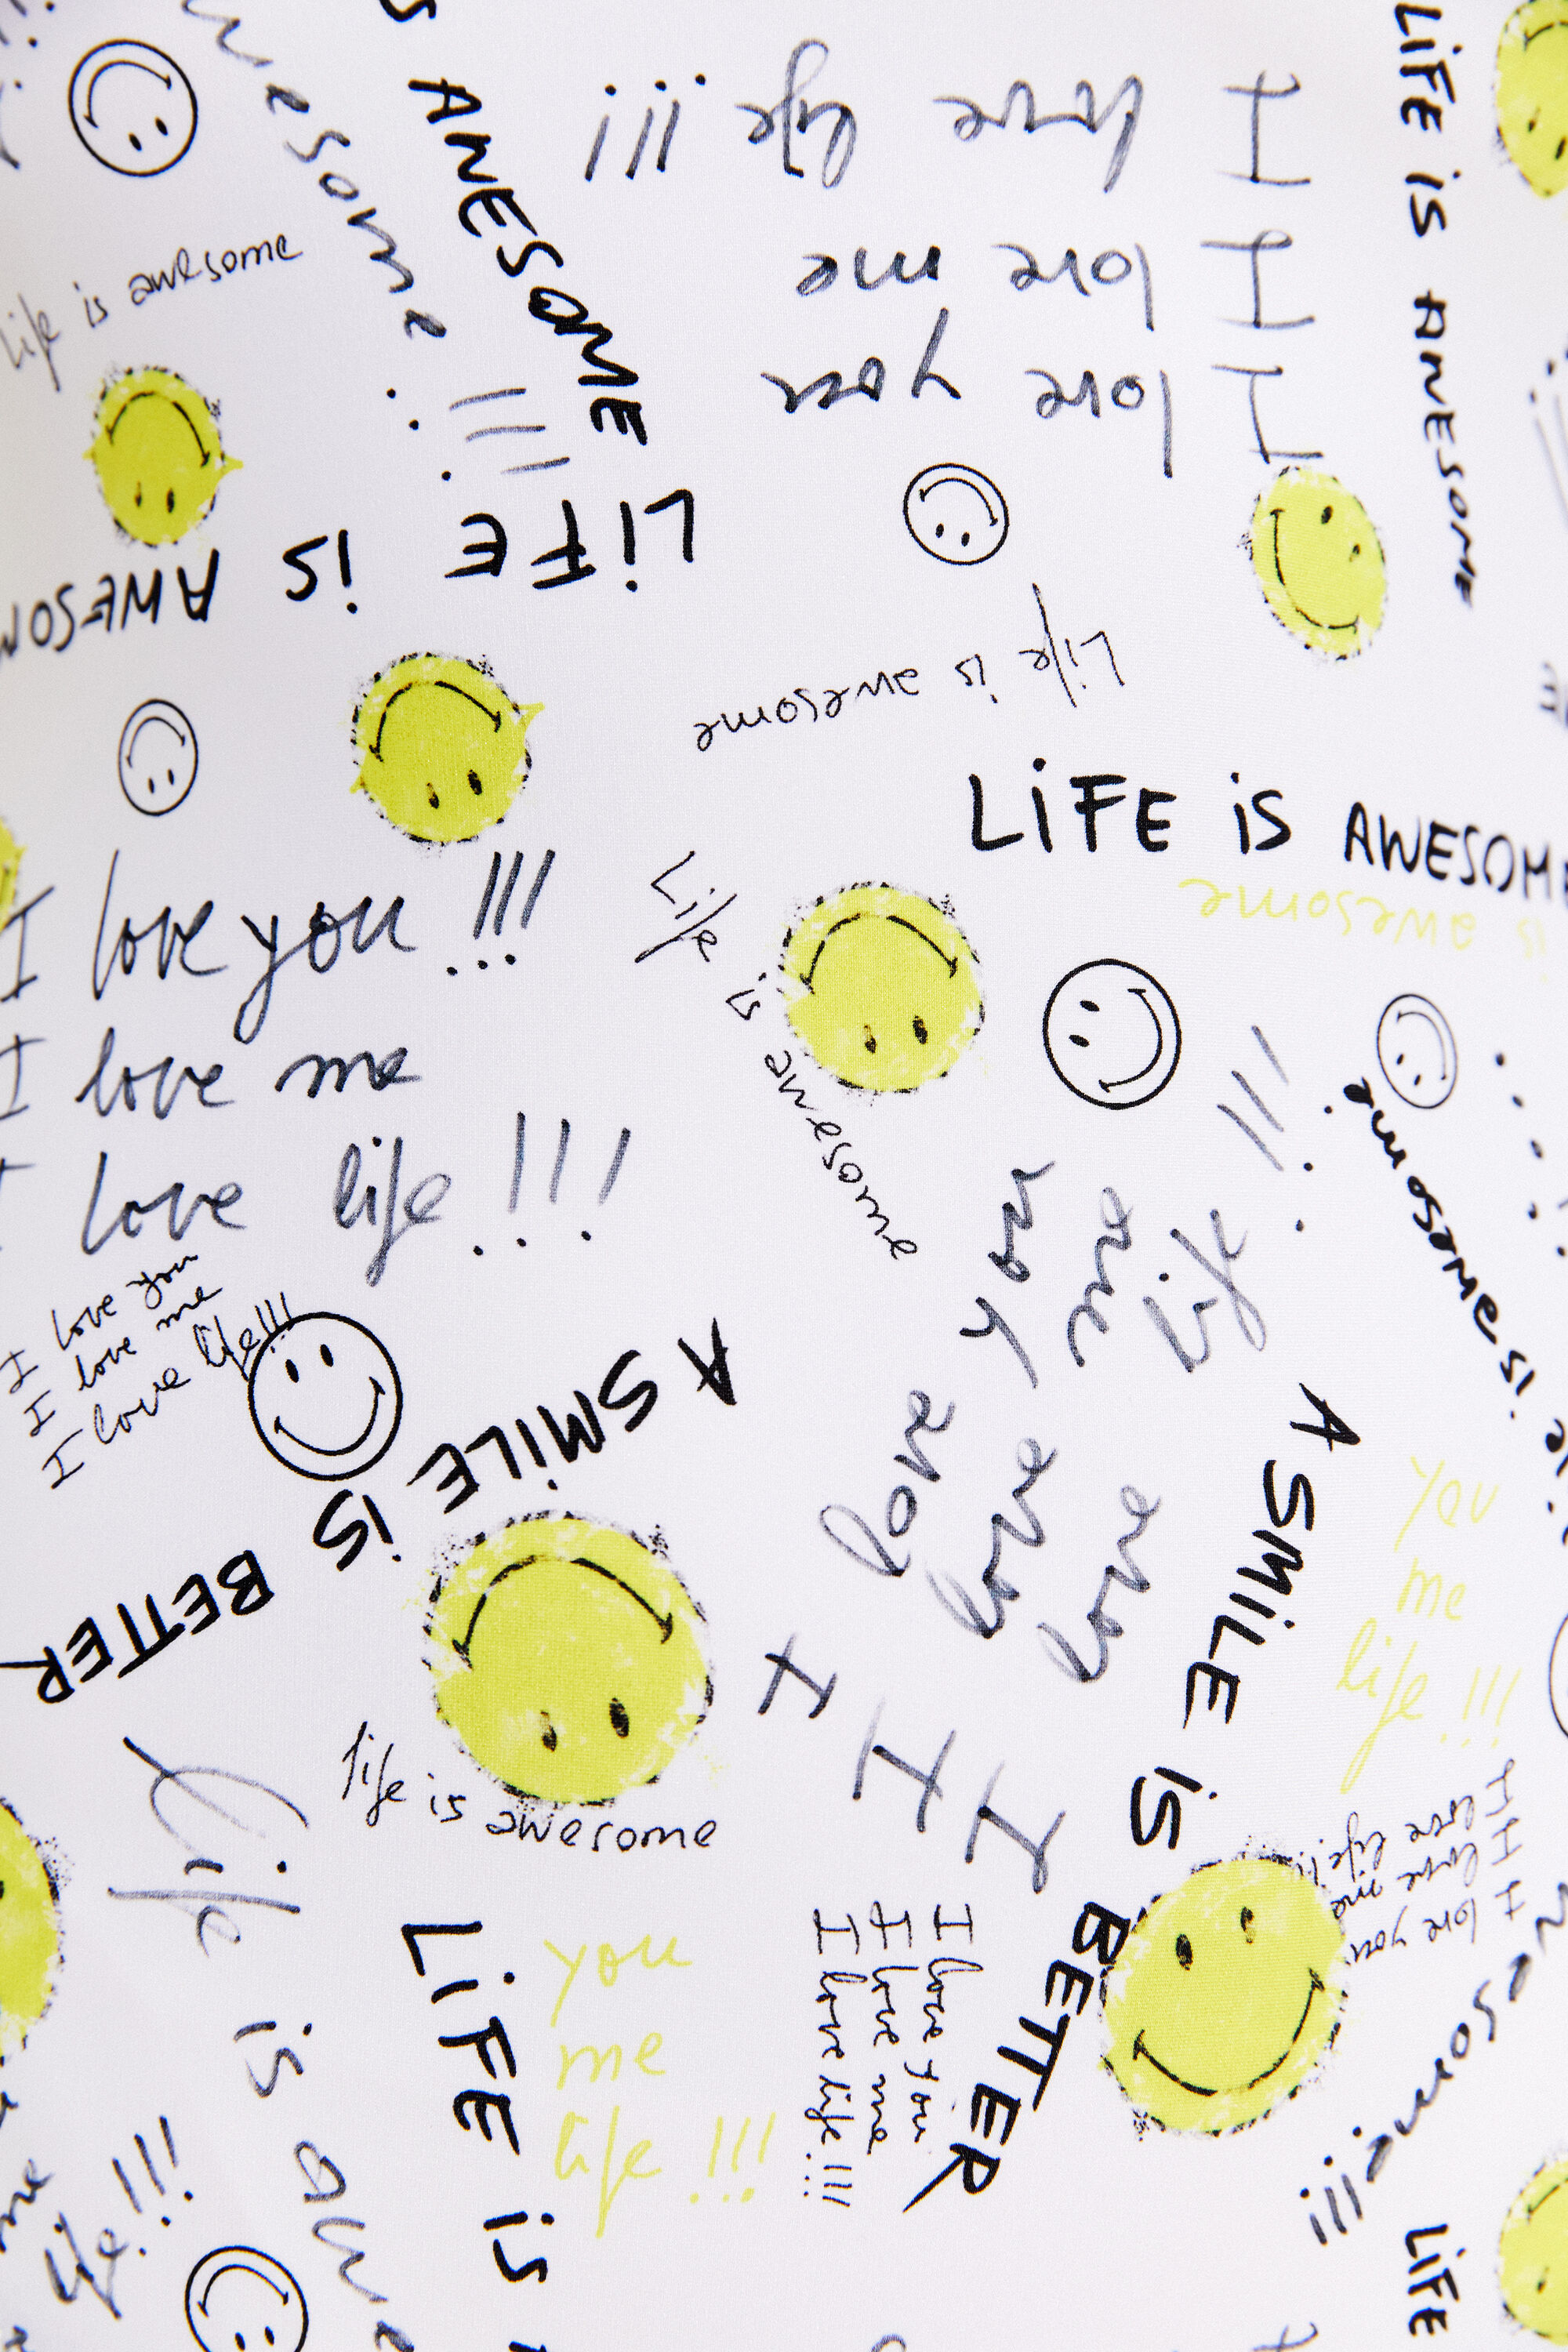 AWESOME
LIFE is AWESOME
esome !!!
I love life !!!
I love me
I love you
life is awesome
LIFE is AWESOM
Life is awesome
LIFE is AWESOME
is awesome
I love you !!!
I love me
love life !!!
Life is awesome
I love you
I love me
I love life !!!
I love you
I love me
I love life !!!
awesome
is
A SMILE is BETTER
A SMILE is BETTER
you
me
life !!!
life is awesome
Life is awe
LIFE is
you
me
life !!!
I love you
I love me
I love life !!!
I love you
I love me
I love life !!
esome !!!
life !!!
LIFE